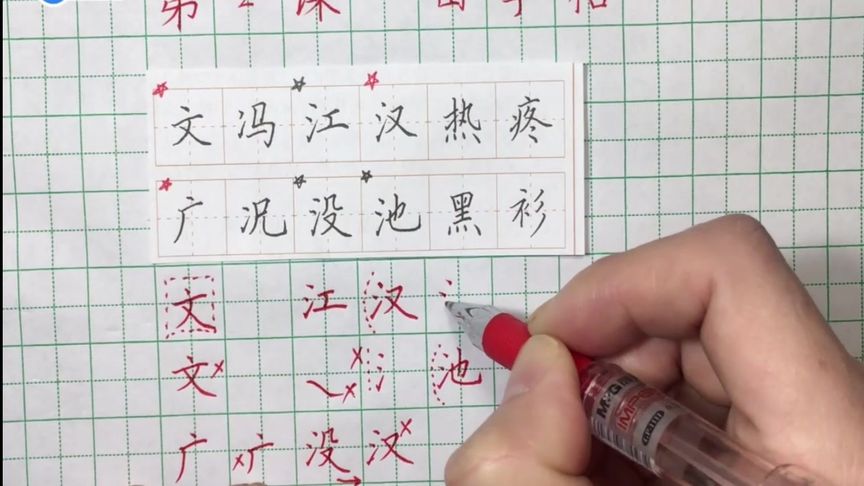 第2课 田字格
文冯江汉热疼
广况没池黑衫
文 江汉氵
文 氵池
广广没汉
M&G